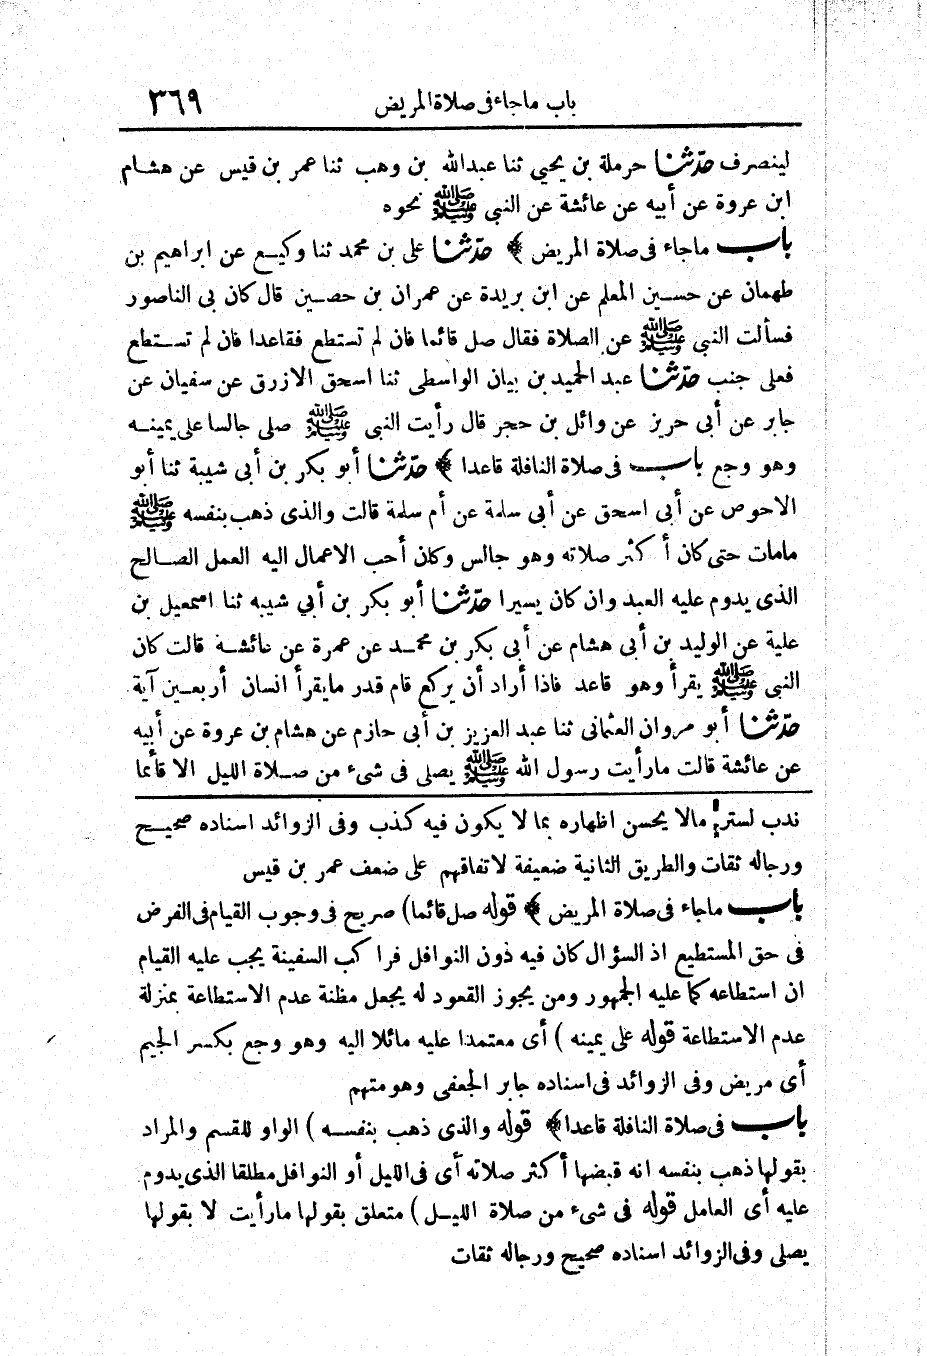 باب ماجاء فى صلاة المريض ٣٦٩
لينصرف حدّثنا حرملة بن يحيى ثنا عبدالله بن وهب ثنا عمر بن قيس عن هشام
ابن عروة عن أبيه عن عائشة عن النبى ﷺ نحوه
باب ماجاء فى صلاة المريض ﴾ حدّثنا على بن محمد ثنا وكيع عن ابراهيم بن
طهمان عن حسين المعلم عن ابن بريدة عن عمران بن حصين قال كان بى الناصور
فسألت النبى ﷺ عن الصلاة فقال صل قائما فان لم تستطع فقاعدا فان لم تستطع
فعلى جنب حدّثنا عبد الحميد بن بيان الواسطى ثنا اسحق الازرق عن سفيان عن
جابر عن أبى حريز عن وائل بن حجر قال رأيت النبى ﷺ صلى جالسا على يمينه
وهو وجع باب فى صلاة النافلة قاعدا ﴾ حدّثنا أبو بكر بن أبى شيبة ثنا أبو
الاحوص عن أبى اسحق عن أبى سلمة عن أم سلمة قالت والذى ذهب بنفسه ﷺ
مامات حتى كان أكثر صلاته وهو جالس وكان أحب الاعمال اليه العمل الصالح
الذى يدوم عليه العبد وان كان يسيرا حدّثنا أبو بكر بن أبي شيبه ثنا اسمعيل بن
علية عن الوليد بن أبى هشام عن أبى بكر بن محمد عن عمرة عن عائشة قالت كان
النبى ﷺ يقرأ وهو قاعد فاذا أراد أن يركع قام قدر مايقرأ انسان أربعين آية
حدّثنا أبو مروان العثمانى ثنا عبد العزيز بن أبى حازم عن هشام بن عروة عن أبيه
عن عائشة قالت مارأيت رسول الله ﷺ يصلى فى شىء من صلاة الليل الا قائما
ندب لستر مالا يحسن اظهاره بما لا يكون فيه كذب وفى الزوائد اسناده صحيح
ورجاله ثقات والطريق الثانية ضعيفة لاتفاقهم على ضعف عمر بن قيس
باب ماجاء فى صلاة المريض ﴾ قوله صل قائما) صريح فى وجوب القيام فى الفرض
فى حق المستطيع اذ السؤال كان فيه دون النوافل فراكب السفينة يجب عليه القيام
ان استطاعه كما عليه الجمهور ومن يجوز القعود له يجعل مظنة عدم الاستطاعة بمنزلة
عدم الاستطاعة قوله على يمينه ) أى معتمدا عليه مائلا اليه وهو وجع بكسر الجيم
أى مريض وفى الزوائد فى اسناده جابر الجعفى وهو متهم
باب فى صلاة النافلة قاعدا﴾ قوله والذى ذهب بنفسه ) الواو للقسم والمراد
بقولها ذهب بنفسه انه قبضها أكثر صلاته أى فى الليل أو النوافل مطلقا الذى يدوم
عليه أى العامل قوله فى شىء من صلاة الليل ) متعلق بقولها مارأيت لا بقولها
يصلى وفى الزوائد اسناده صحيح ورجاله ثقات